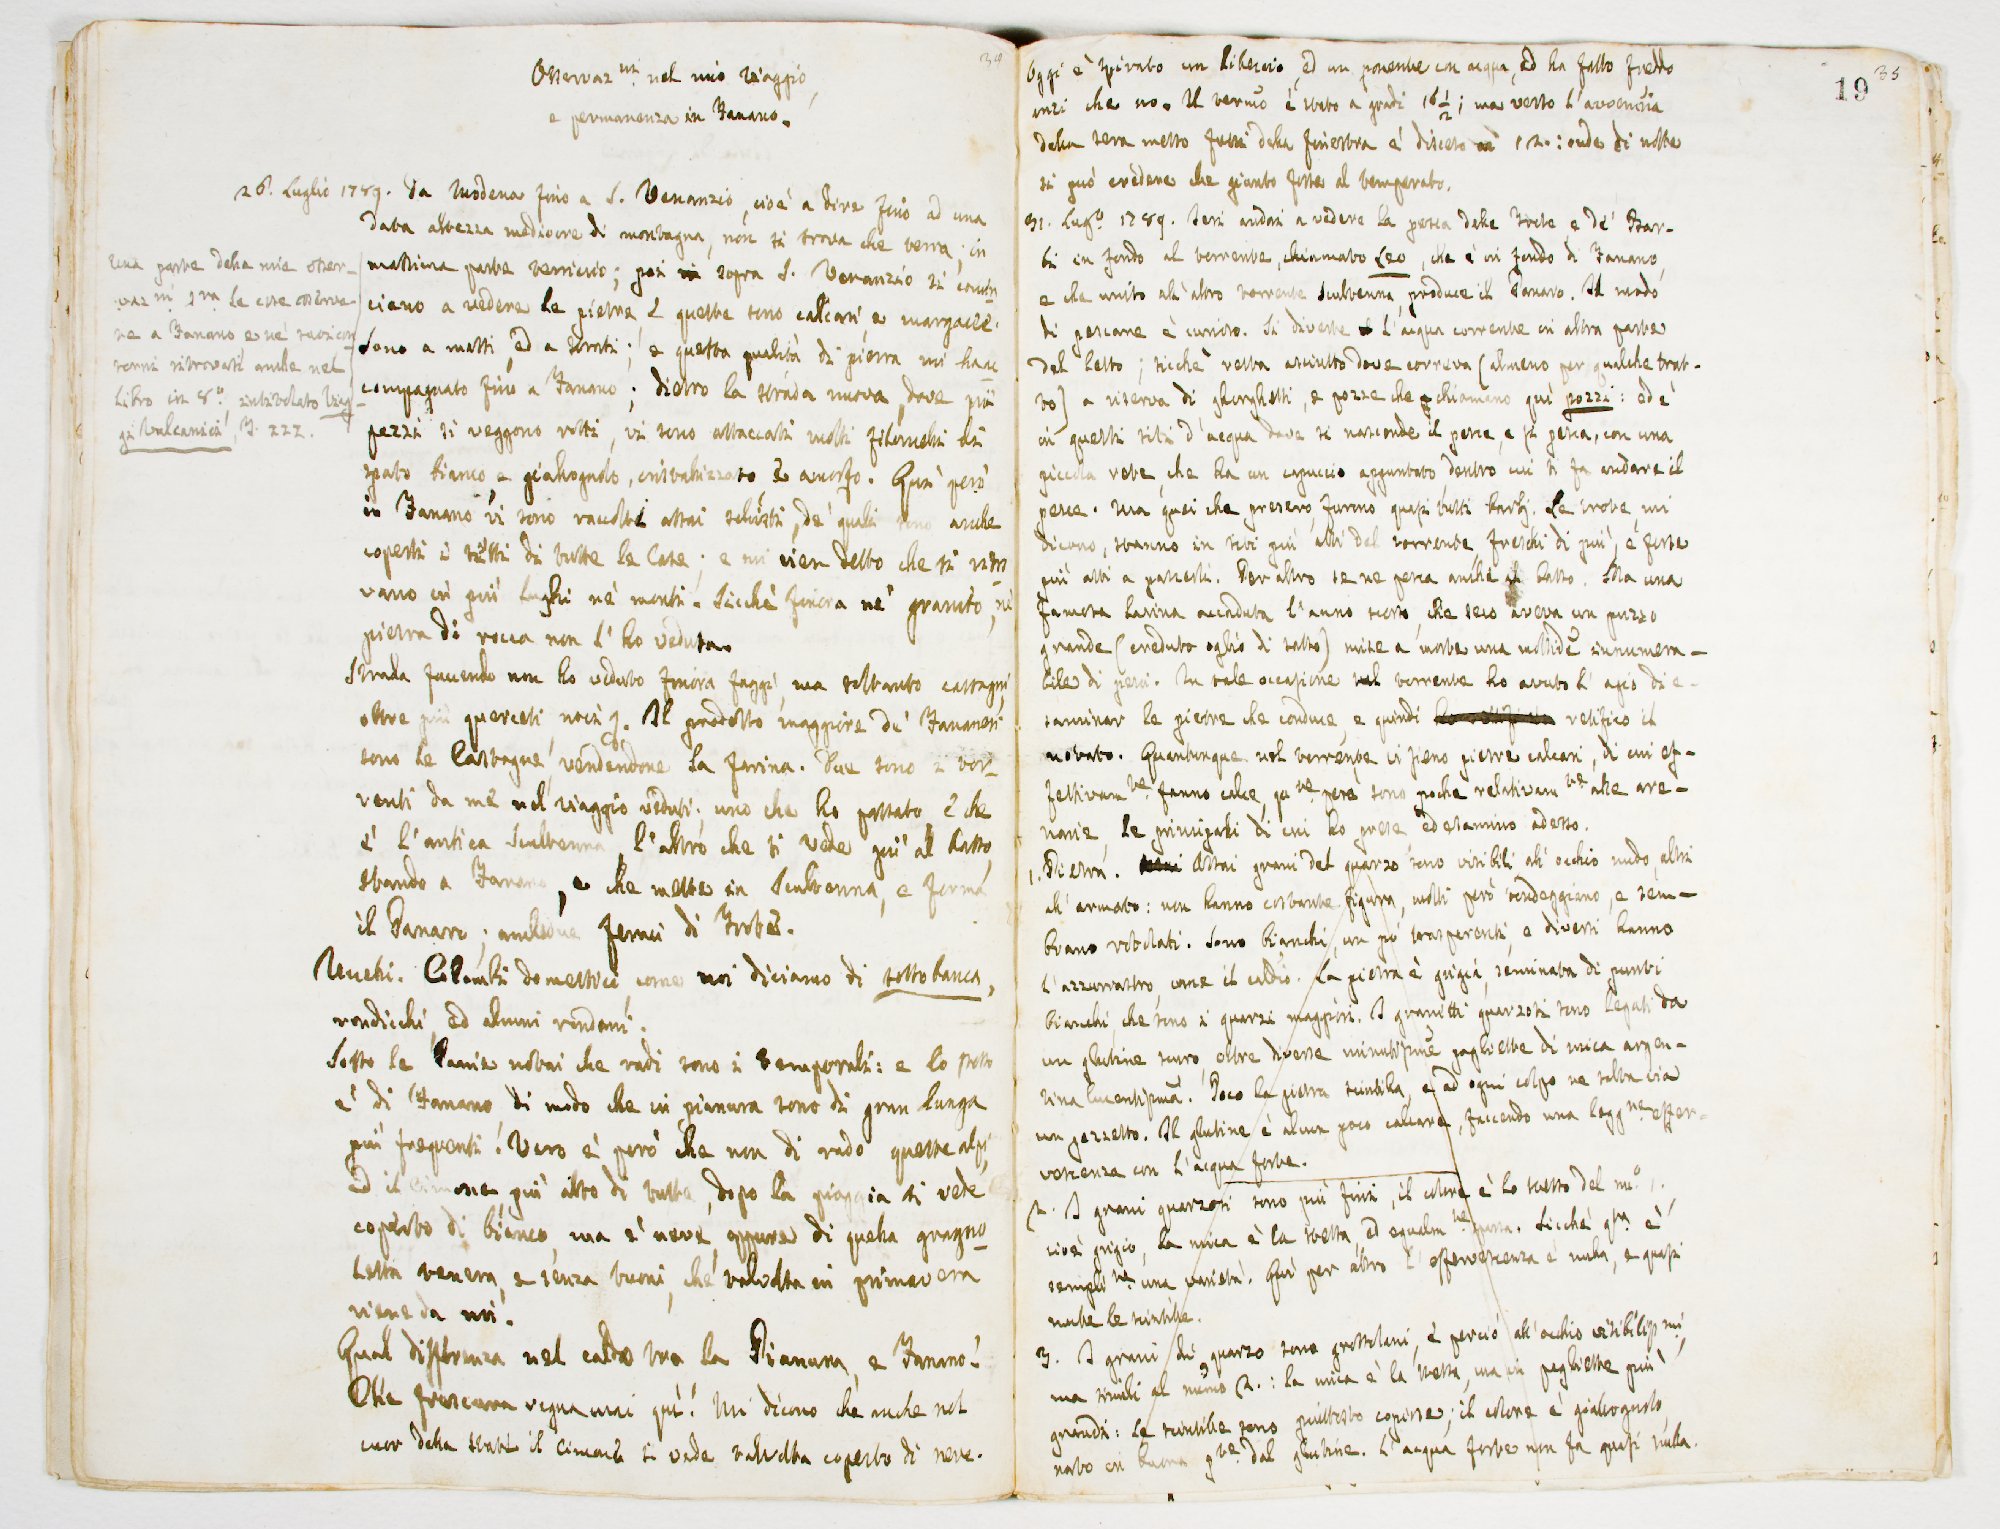 34
Osservaz.ni nel mio viaggio,
e permanenza in Fanano.
26. Luglio 1789. Da Modena fino a S. Venanzio, cioè a dire fino ad una
data altezza mediocre di montagna, non si trova che terra, in
massima parte terriccio; poi sopra S. Venanzio si comin
ciano a vedere le pietre, e queste sono calcari, e margacee.
Sono a massi, ed a strati; e questa qualità di pietra mi ha ac
compagnato fino a Fanano; dietro la strada nuova, dove più
pezzi si veggono rotti, vi sono attaccati molti filoncelli di
spato bianco e giallognolo, cristallizzato e amorfo. Qui però
in Fanano vi sono raccolti assai schisti, de' quali sono anche
coperti i tetti di tutte le Case; e mi vien detto che si ritro
vano in più luoghi ne' monti. Sicchè finora nè granito, nè
pietra di rocca non l'ho veduta.
Strada facendo non ho veduto finora faggi, ma soltanto castagni,
oltre più querceti, noci &. Il prodotto maggiore de' Fananesi
sono le Castagne, vendendone la farina. Due sono i tor
renti da me nel viaggio veduti; uno che ho passato, e che
è l'antica Scultenna, l'altro che si vede più al basso,
stando a Fanano, e che mette in Scultenna, e forma
il Panaro; amendue feraci di Trote.
Uccelli. Colombi domestici come noi diciamo di sottobanca,
rondicchi, ed alcuni rondoni.
Sotto le Lamie notai che radi sono i temporali: e lo stesso
è di Fanano di modo che in pianura sono di gran lunga
più frequenti. Vero è però che non di rado queste alpi,
ed il Cimone, più alto di tutte, dopo la pioggia si vede
coperto di bianco, ma è neve, oppure di quella gragno
letta tenera, e senza tuoni, che talvolta in primavera
viene da noi.
Qual differenza nel caldo tra la Pianura, e Fanano!
Che frescura regna mai quì! Mi dicono che anche nel
cuor della state il Cimone si vede talvolta coperto di neve.
Una parte delle mie osser-
vaz.ni s.ra le cose osserva-
te a Fanano e ne'
ritrovasi anche nel
Libro in 8.o intitolato Viag-
gi Vulcanici, F. ZZZ.
19
35
Oggi è spirato un libeccio, ed un ponente con acqua, ed ha fatto freddo
anzi che no. Il term.o è stato a gradi 16 1/2; ma verso l'avvenuta
della sera messo fuori della finestra è disceso 12.: onde di notte
si può credere che giunto fosse al temperato.
31. Lug.o 1789. Ieri andai a vedere la pesca delle Trote e de' Bar-
bi in fondo al torrente, chiamato Leo, che è in fondo di Fanano,
e che unito all'altro torrente Scultenna, produce il Panaro. Il modo
di pescare è curioso. Si diverte l'acqua corrente in altra parte
del letto; sicchè resta asciutto dove correva (almeno per qualche trat-
to) a riserva di ghorghetti, e pozze che chiamano quì pozzi: ed è
in questi siti d'acqua dove si nasconde il pesce, e si pesca, con una
piccola rete, che ha un capuccio appuntato, dentro cui si fa andare il
pesce. Ma quei che presero, furono quasi tutti barbj. Le trote, mi
dicono, stanno in siti più alti del torrente, freschi di più, e forse
più atti a pascerli. Per altro se ne pesca anche al basso. Ma una
famosa lavina accaduta l'anno scorso, che seco aveva un puzzo
grande (creduto oglio di sasso) mise a morte una moltid.e innumera-
bile di pesci. In tale occasione nel torrente ho avuto l'agio di e-
saminar le pietre che conduce, e quindi retifico il
notato. Quantunque nel torrente vi sieno pietre calcari, di cui ef-
fettivam.te fanno calce, q.te però sono poche relativam.te alle are-
narie, le principali di cui ho prese ed esamino adesso.
1. Pietra. Assai grani del quarzo sono visibili all'occhio nudo, altri
all'armato: non hanno costante figura, molti però tondeggiano, e sem-
brano rotolati. Sono bianchi, un po' trasparenti, e diversi hanno
l'azzurrastro, come il caldo. La pietra è grigia, seminata di punti
bianchi che sono i quarzi maggiori. I granitti quarzosi sono legati da
un glutine scuro, oltre diverse minutissime pagliette di mica argen-
tina lucentissima. Poco la pietra scintilla, e ad ogni colpo ne salta via
un pezzetto. Il glutine è alcun poco calcare, facendo una legg.re effer-
vescenza con l'acqua forte.
2. I grani quarzosi sono più fini, il colore è lo stesso del nu.o 1.,
cioè grigio, la mica è la stessa, ed egualm.te sparsa. Sicchè q.ta è
sempli.te una varietà. Qui per altro l'effervescenza è nulla, e quasi
nulle le scintille.
3. I grani di quarzo sono grossolani, e perciò all'occhio visibilissimi,
ma simili al numo 2.: la mica è la stessa, ma in pagliette più
grandi: le scintille sono piuttosto copiose; il colore è giallognolo,
nato in buona p.te dal glutine. L'acqua forte non fa quasi nulla.